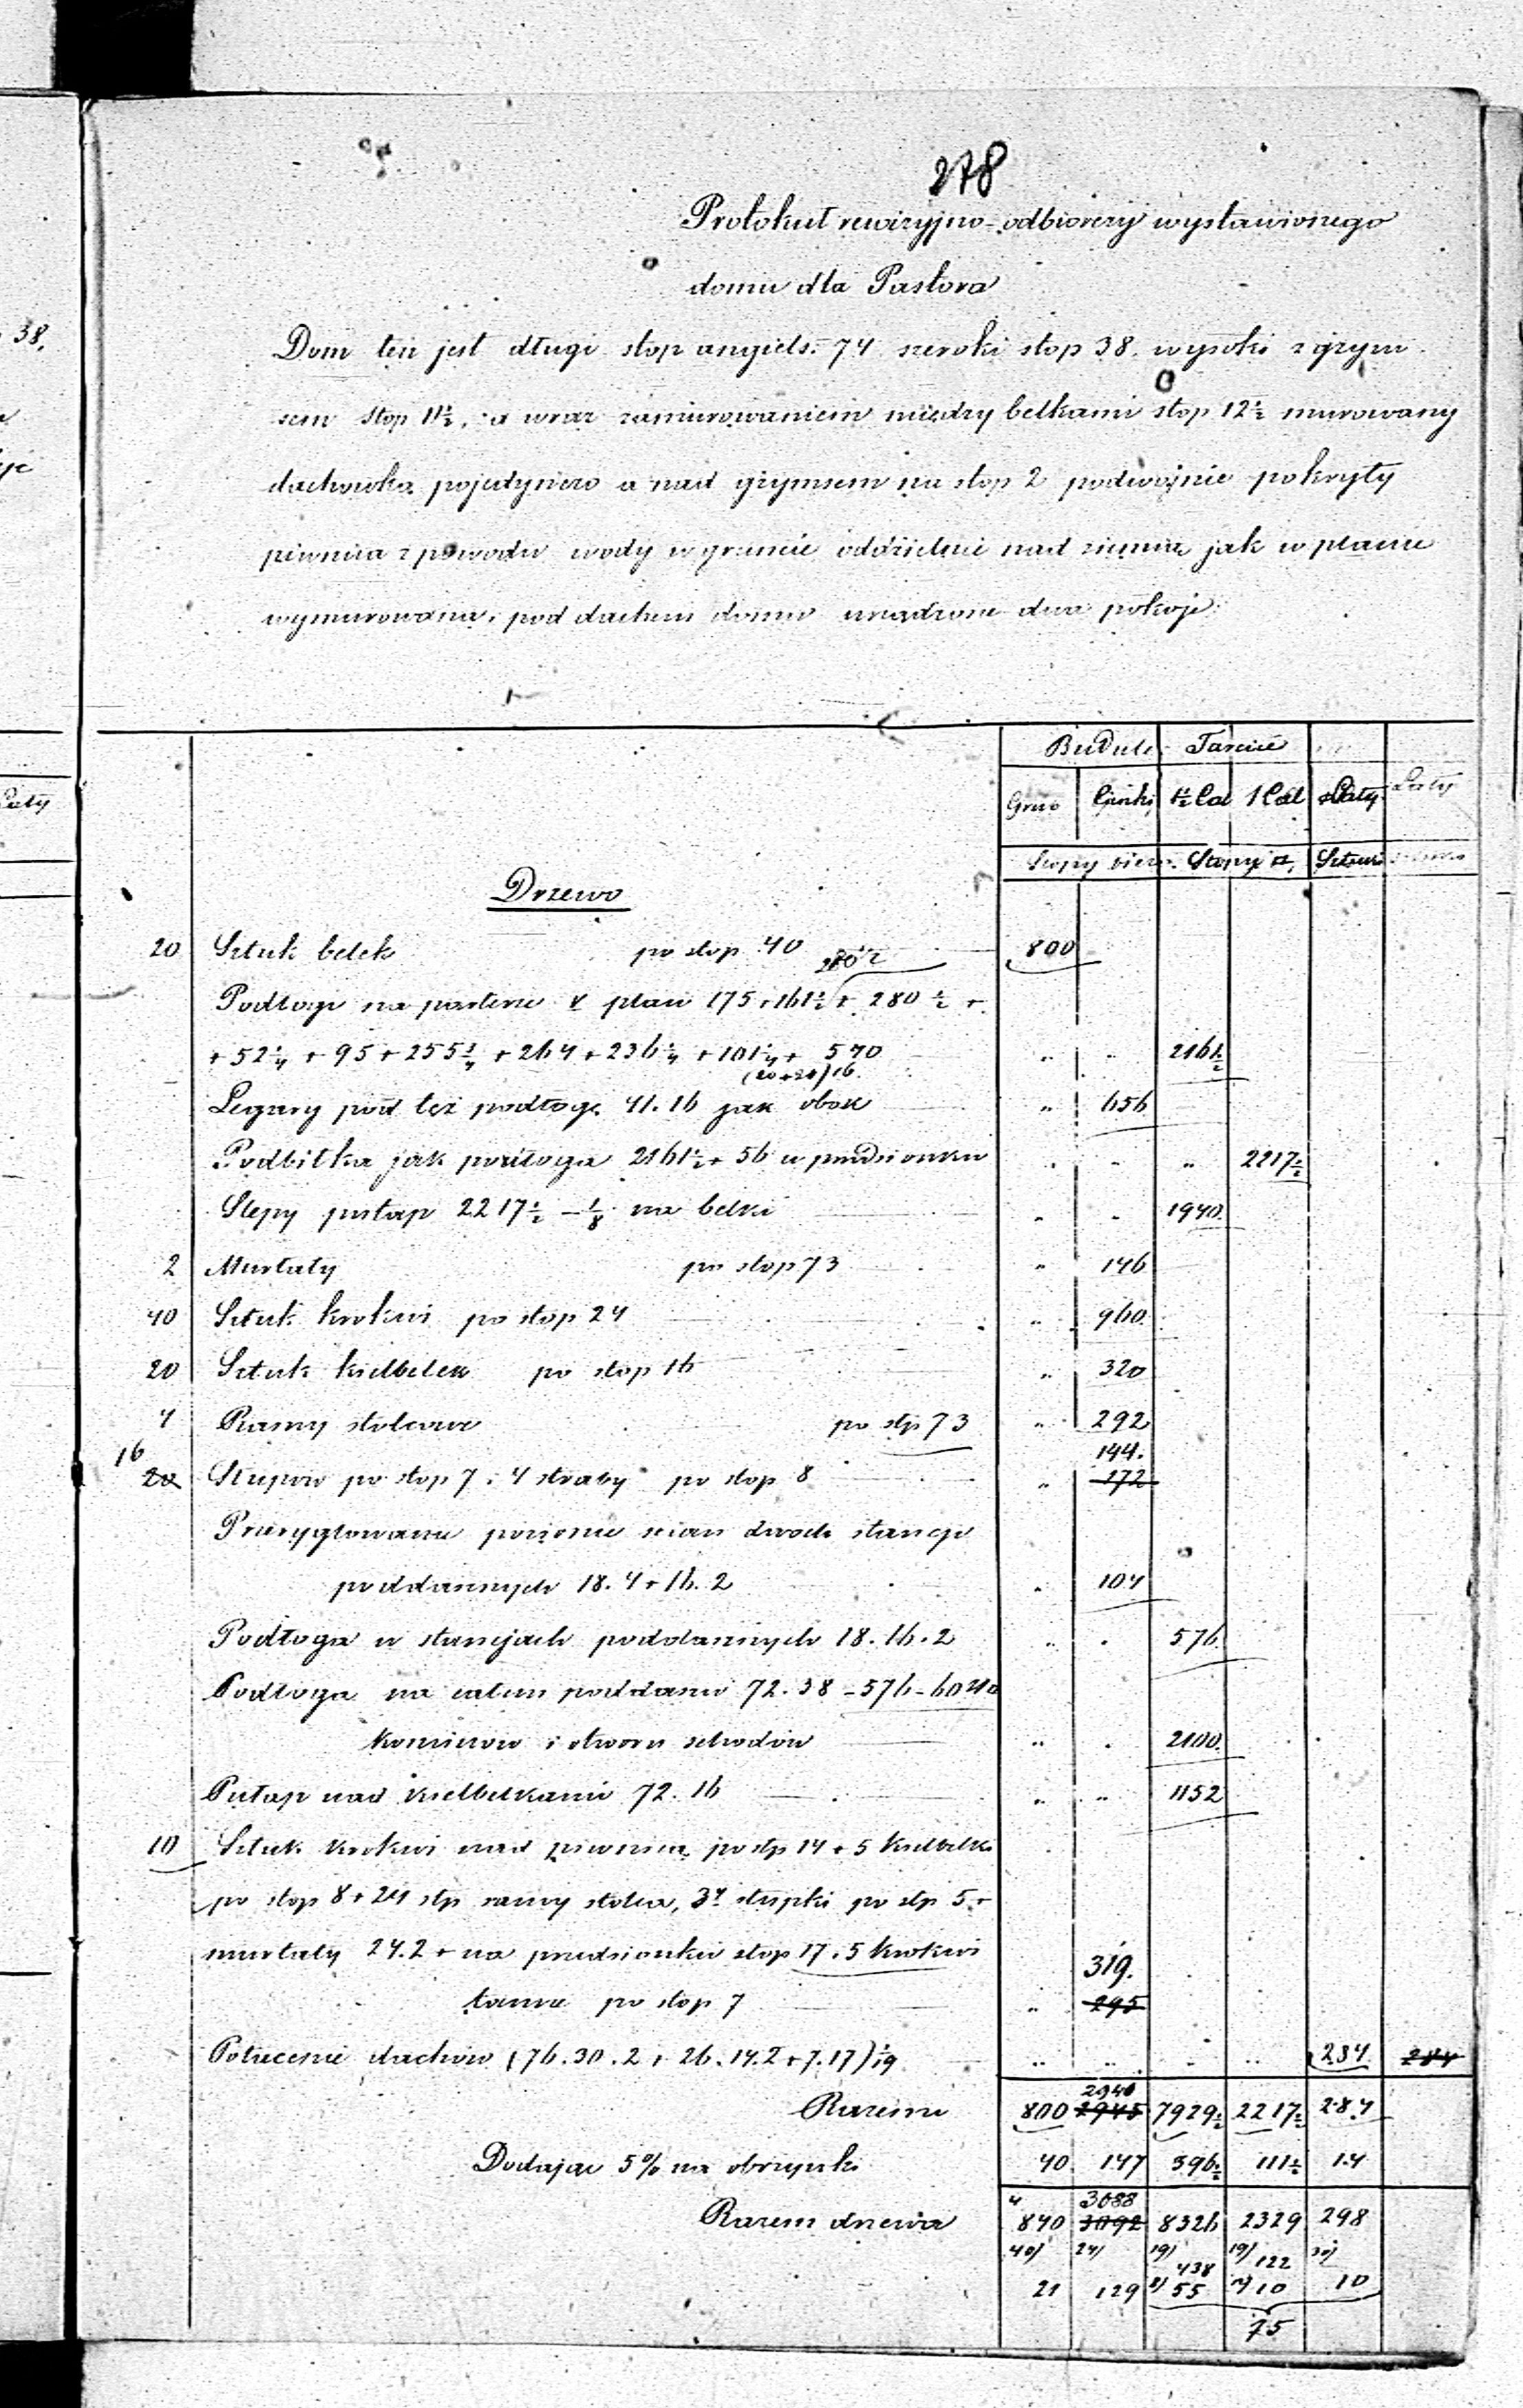 278
Protokuł rewizyjno-odbiorczy wystawionego
domu dla Pastora
Dom ten jest długi stop angiels. 74 szeroki stop 38. wysoki z grym
sem stop 11½, a wraz zamurowaniem między belkami stop 12½ murowany
dachowką pojedynczo a nad grymsem na stop 2 podwojnie pokryty
piwnica z powodu wody w gruncie oddzielnie nad ziemią jak w planie
wymurowana, pod dachem domu urządzone dwa pokoje
38,
Łaty
Budulec Tarcice
Grub Cienki 1½ Cal 1 Cal Łaty Łaty
Stopy bież. Stopy □, Sztuki
Drzewo
20 Sztuk belek po stop 40 800
280½
Podłogi na parterze z plan 175 + 161½ + 280½ +
+ 52¼ + 95 + 255¾ + 264 + 236¼ + 101¼ + 540 " " 2161½
(20+21)16.
Legary pod też podłogę 41.16 jak obok " 656
Podbitka jak podłoga 2161½ + 56 w przedsionku " " " 2217½
Slepy pułap 2217½ - ⅛ na belki " " 1940.
2 Murłaty po stop 73 " 146
40 Sztuk krokwi po stop 24 " 960
20 Sztuk kielbelek po stop 16 " 320
4 Ramy stolcowe po stp 73 " 292
16 144.
20 Słupow po stop 7. 4 straby po stop 8 " 172
Przeryglowanie poziome scian dwoch stancji
poddasznych 18.4 + 16.2 " 104
Podłoga w stancjach poddasznych 18.16.2 " " 576
Podłoga na całem poddaszu 72.38 - 576 - 60 na
kominow i otworu schodów " " 2100.
Pułap nad kielbelkami 72.16 " " 1152
10 Sztuk krokwi nad piwnicą po stp 14 + 5 kielbelki
po stop 8 + 24 stp ramy stolca, 3 słupki po stp 5 +
murłaty 24.2 + na przedsionku stop 17. 5 krokwi
319.
po stop 7 " 295
Połacenie dachow (76.30.2 + 26.14.2 + 7.17) " " " " 284 284
2940
Razem 800 2945 7929½ 2217½ 284
Dodając 5% na obrzynki 40 147 396½ 111½ 14
3088
Razem drzewa 840 3092 8326 2329 298
40) 24) 19) 19) 30)
438 122
21 129 55 10 10
75